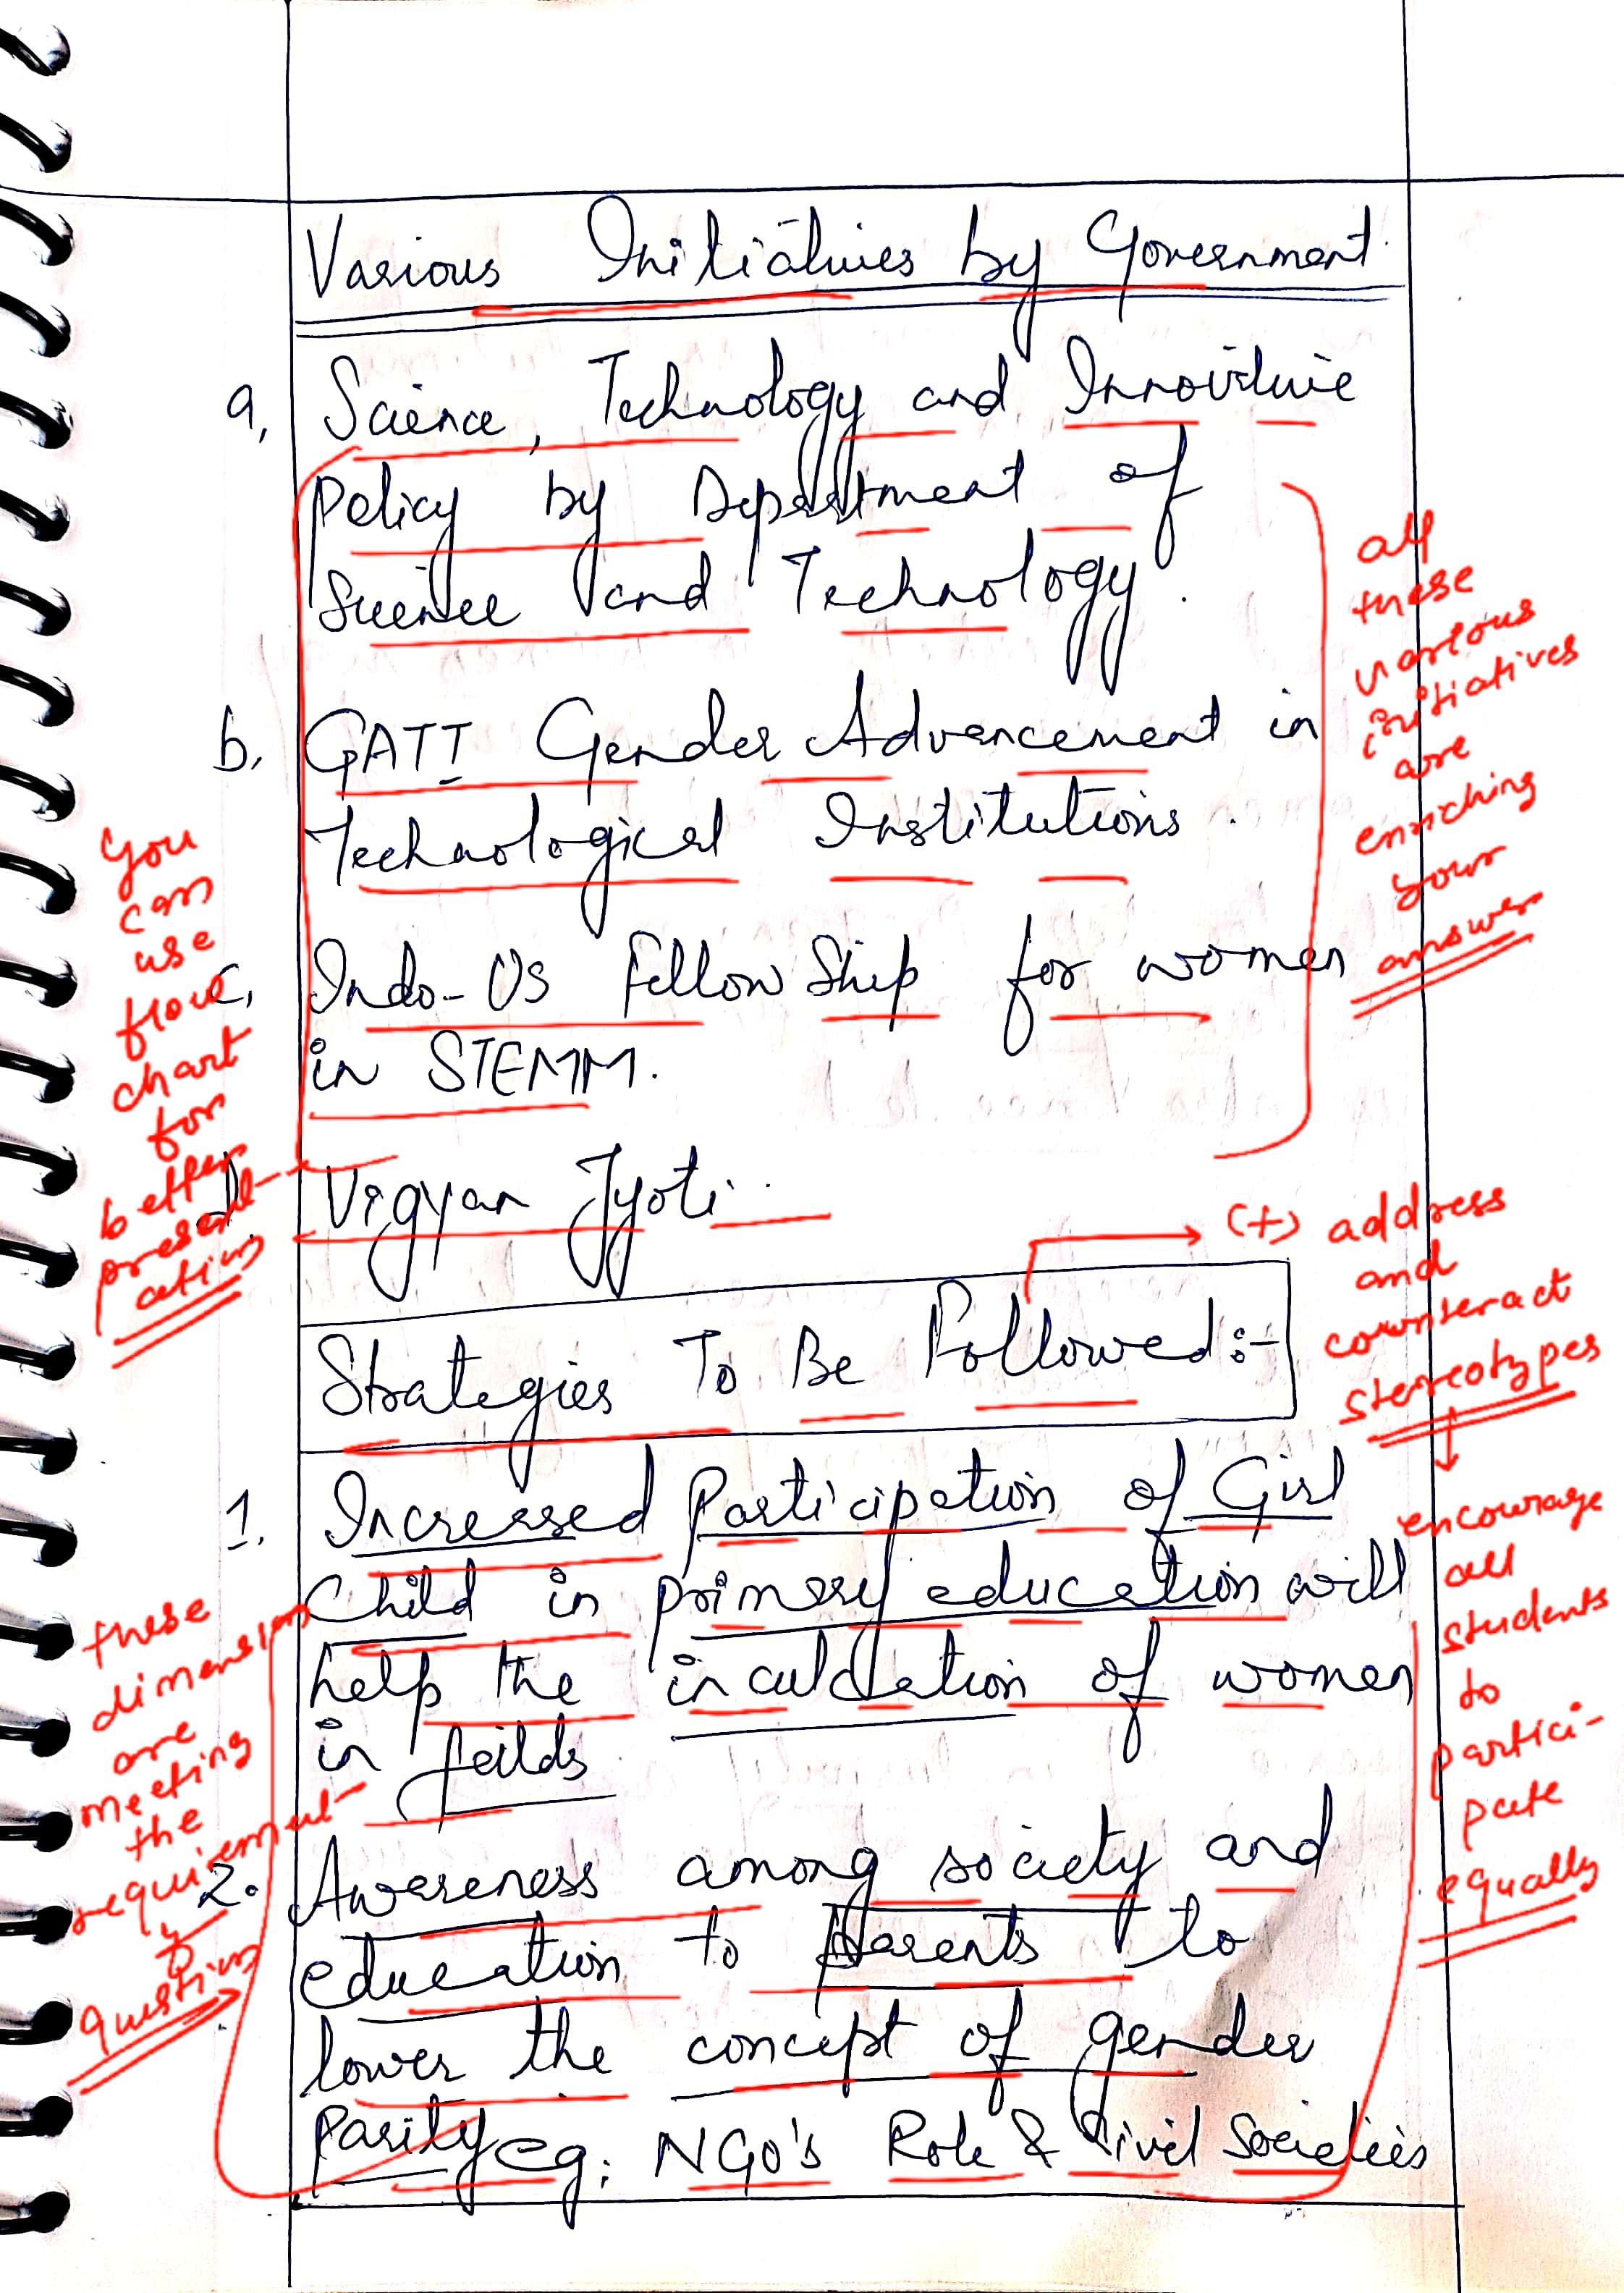 Various Initiatives by Government
a, Science, Technology and Innovitive
Policy by Department of
Science and Technology.
b, GATI Gender Advancement in
Technological Institutions.
c, Indo-US FellowShip for women
in STEMM.
d, Vigyan Jyoti
Strategies To Be Followed:-
1. Increased Participation of Girl
Child in primary education will
help the inculcation of women
in feilds
2. Awareness among society and
education to Parents to
lower the concept of gender
Parity eg: NGO's Role & Civil Societies
all
these
various
initiatives
are
enriching
your
answer
You
can
use
flow
chart
for
better
present-
ation
(+) address
and
counteract
stereotypes
encourage
all
students
to
partici-
pate
equally
these
dimensions
are
meeting
the
requirement
of
question